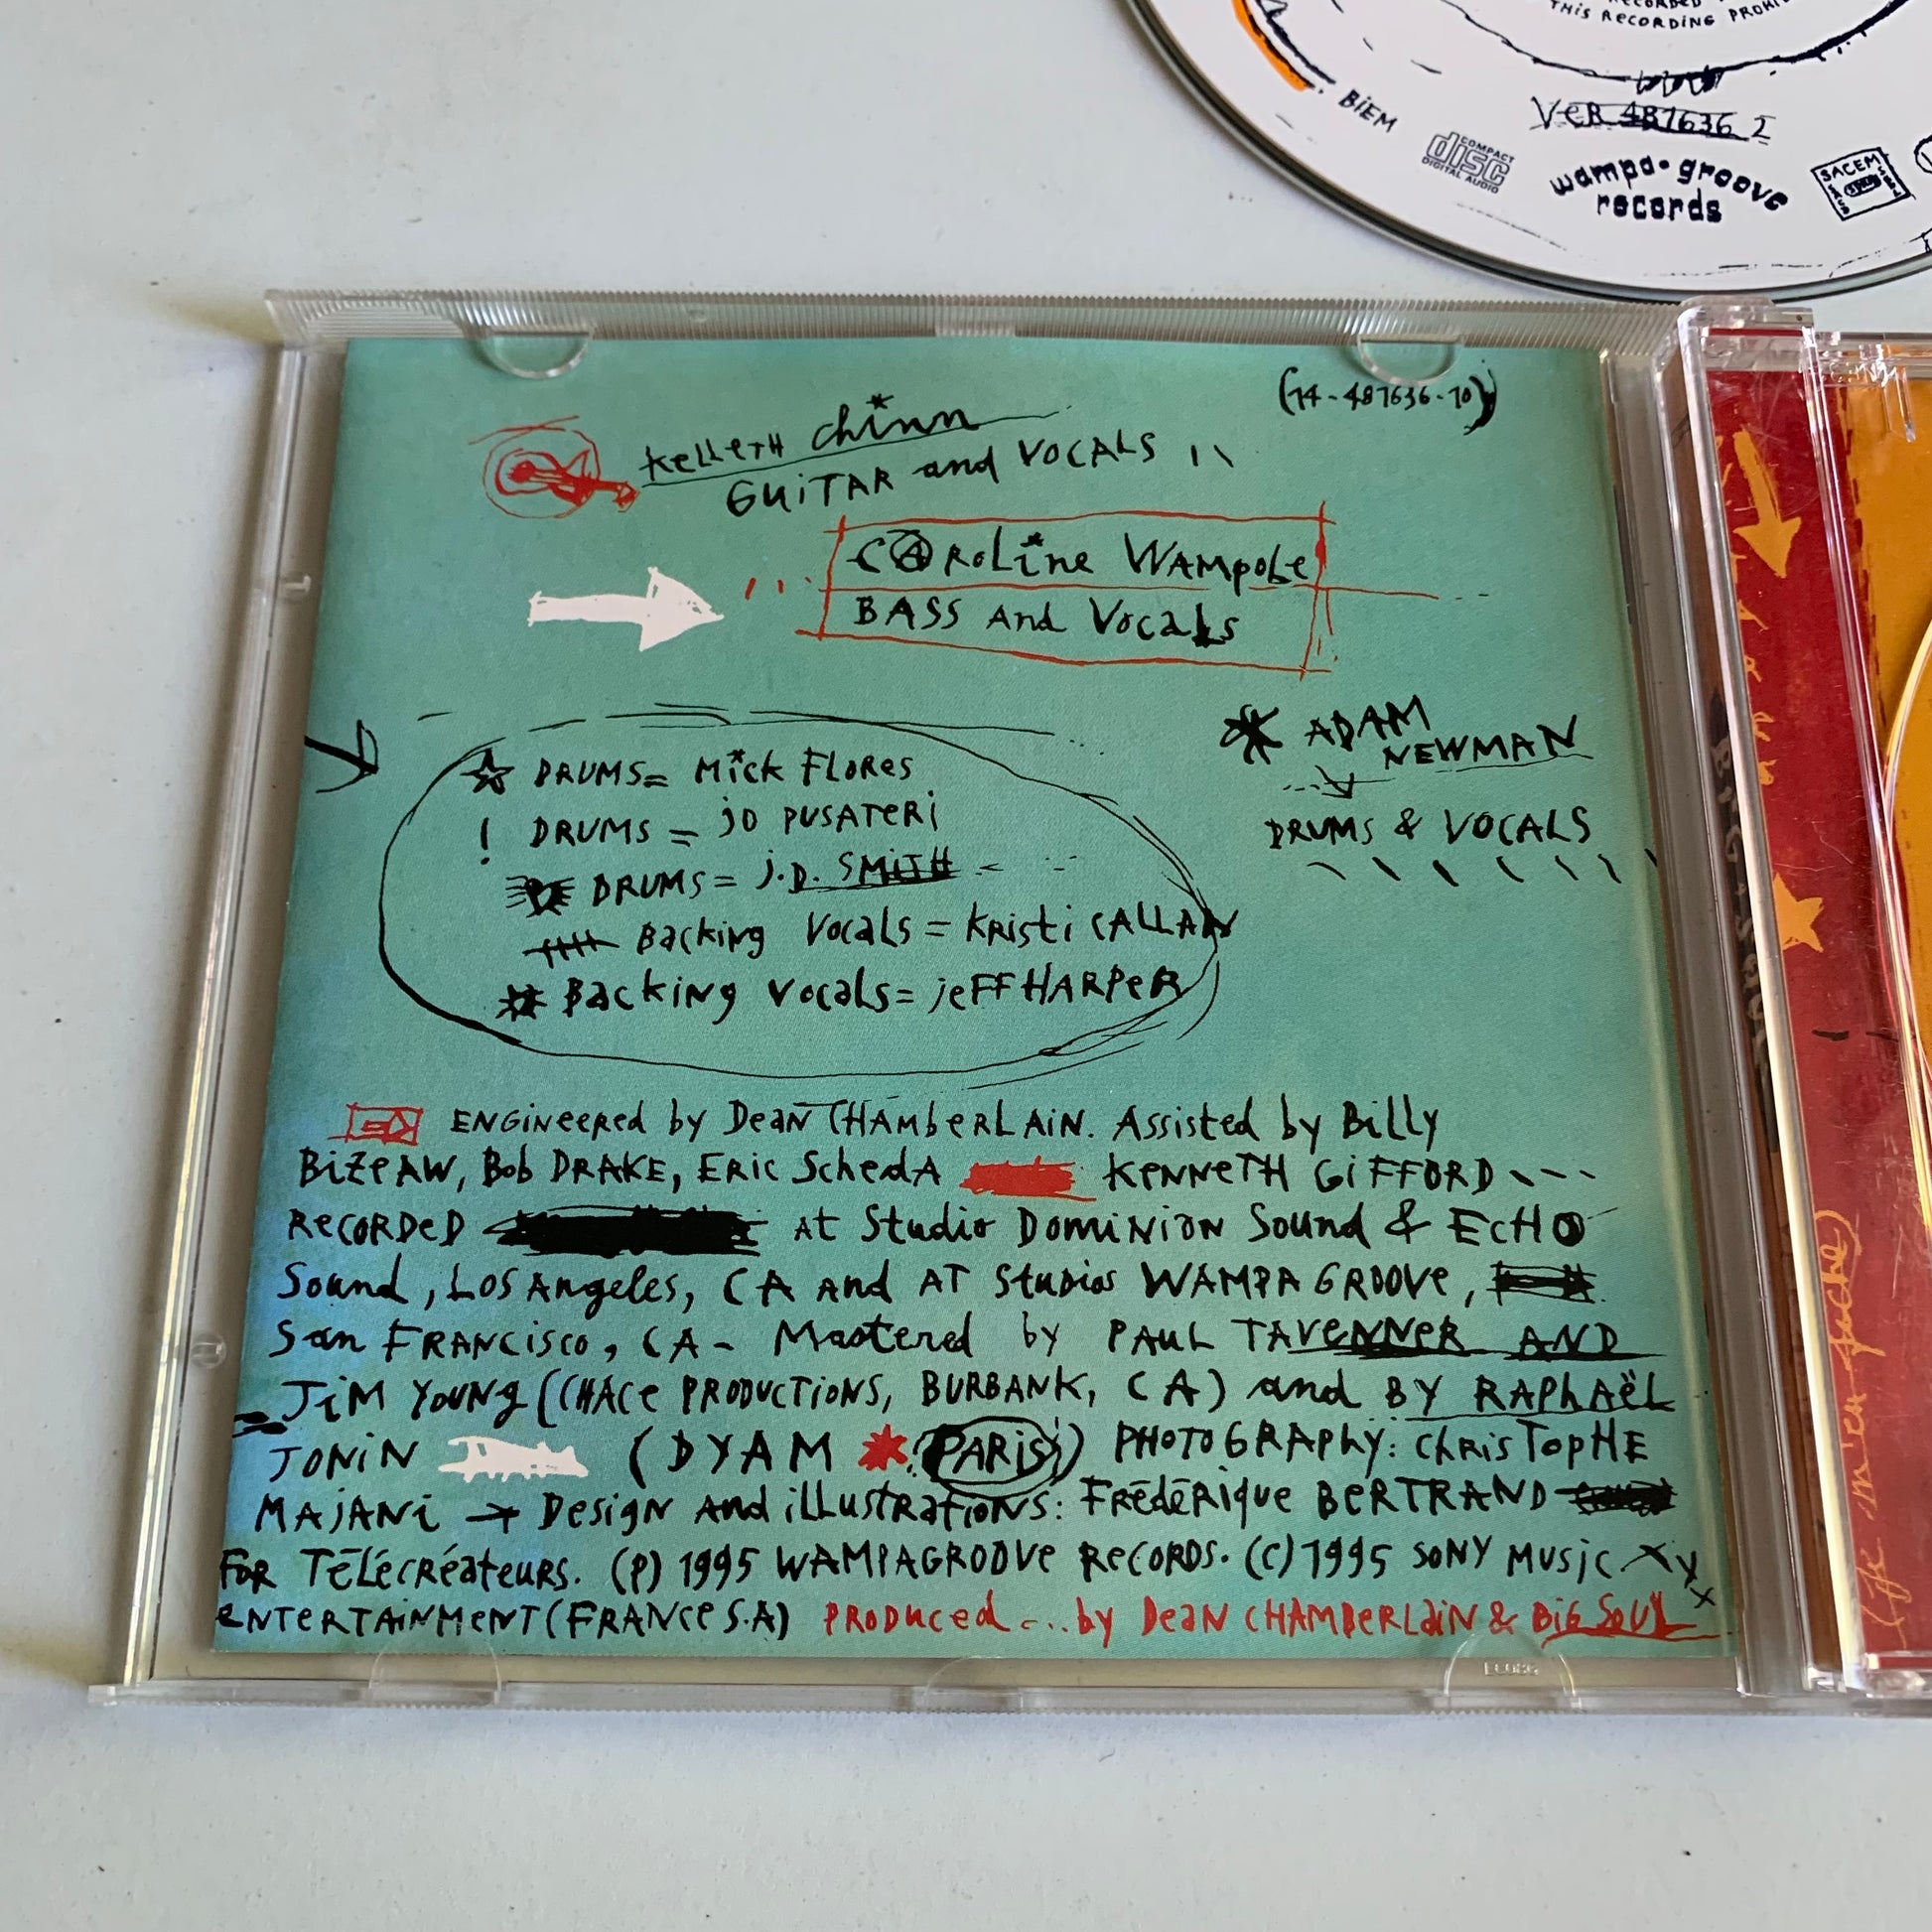 THIS RECORDING PROHI
BIEM
VER 487636 2
COMPACT
disc
DIGITAL AUDIO
wampa·groove
records
SACEM
(14-487636-10)
KELLETH Chinn
GUITAR and VOCALS
CAROLine WAMPOLe
BASS And Vocals
* ADAM
NEWMAN
DRUMS & VOCALS
☆ DRUMS= Mick FLORES
! DRUMS = jO PUSATERi
DRUMS= J.D. SMITH
Backing Vocals = KRisti CALLAN
* Backing Vocals= jeFF HARPeR
ENGineered by Dean CHAMbeRLAiN. Assisted by Billy
BiZeAW, Bob DRAKE, ERic SchedA KENNETH GiFFORD
RecORDeD At Studio DOMiNiON Sound & EcHO
Sound, LOS Angeles, CA And AT Studios WAMPA GROOVe,
San FRANCisco, CA - Mastered by PAUL TAVENNER AND
JiM YOUNg (CHACE PRODUCTiONS, BURBANK, CA) and BY RAPhAëL
JONiN (DYAM * PARiS) PHOTOGRAPhy: ChRisTopHE
MAjANi → Design And iLLustRatiONS: FRédéRique BeRTRAND
FOR Télécréateurs. (P) 1995 WAMPAGROOVe RecORDS. (C) 1995 SONY MUSic
eNTeRTAiNMeNT (FRANCe S.A) PRODuced ... by DeaN CHAMbeRLaiN & BiG SOUL